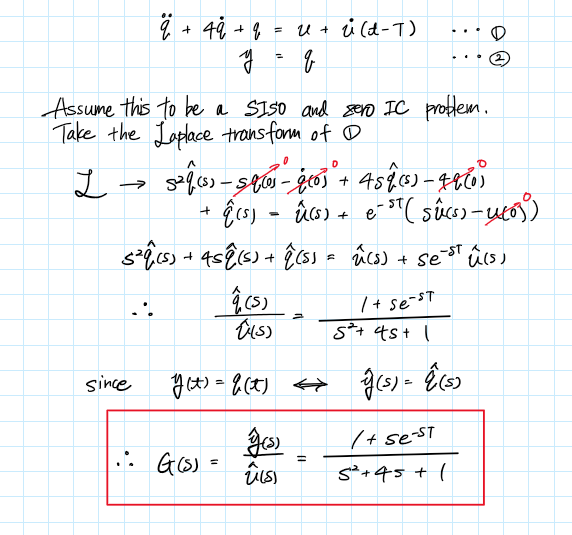 q̈ + 4q̇ + q = u + u̇(t-T) ... ①
y = q ... ②
Assume this to be a SISO and zero IC problem.
Take the Laplace transform of ①
ℒ → s²q̂(s) - sq(0) - q̇(0) + 4sq̂(s) - 4q(0)
0 0 0
+ q̂(s) = û(s) + e^{-sT}(sû(s) - u(0))
0
s²q̂(s) + 4sq̂(s) + q̂(s) = û(s) + se^{-sT} û(s)
∴ q̂(s)/û(s) = (1 + se^{-sT})/(s² + 4s + 1)
since y(t) = q(t) ⟺ ŷ(s) = q̂(s)
∴ G(s) = ŷ(s)/û(s) = (1 + se^{-sT})/(s² + 4s + 1)